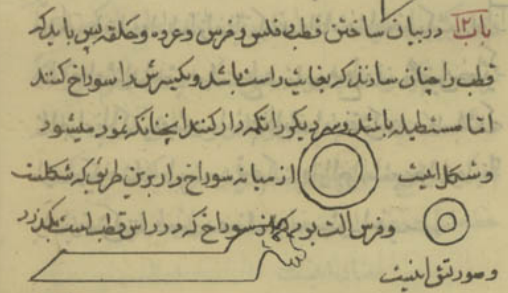 باب ۱۲ در بیان ساختن قطب و فلس و فرس و عروه و حلقه پس باید که
قطب را چنان سازند که بغایت راست باشد و یکسرش را سوراخ کنند
اما مستطیل باشد و سر دیگر را تکمه دار کنند انچنانکه نمود میشود
و شکل اینست از میانه سوراخ دار برین طریق که شکلست
و فرس الت بود سوراخ که در راس قطب است بگذرد
و صورتش اینست